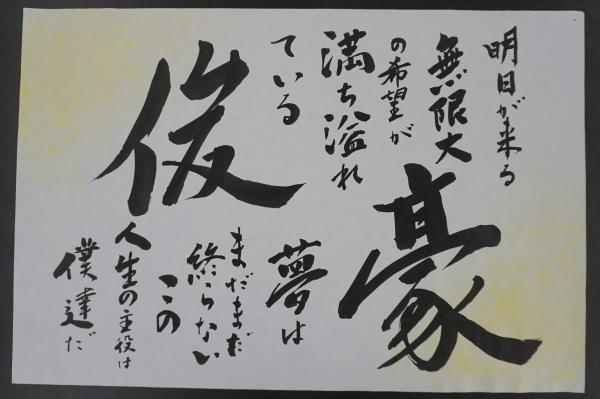 明日が来る
無限大
の希望が
満ち溢れ
ている
豪
俊
夢は
まだまだ
終らない
この
人生の主役は
僕達だ